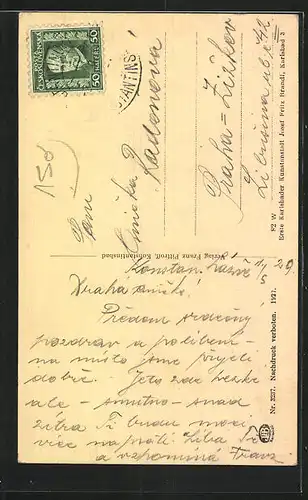 50 ČESKOSLOVENSKO 50
HALÉŘŮ
150
Paní
Radoňová
Praha = Žižkov
Verlag Franz Pittroff, Konstantinsbad
Erste Karlsbader Kunstanstalt Josef Fritz Brandl, Karlsbad 3
F2 W
Nr. 3237. Nachdruck verboten. 1921.
Konstan. Lázně 29.
Drahá
Předem srdečný
pozdrav a políben-
na místo jsme přijeli
dobře. - Jeto zde hezké
ale - smutno - snad
zítra Ti budu moci
více napsati. Líbá Tě
a vzpomíná Franz